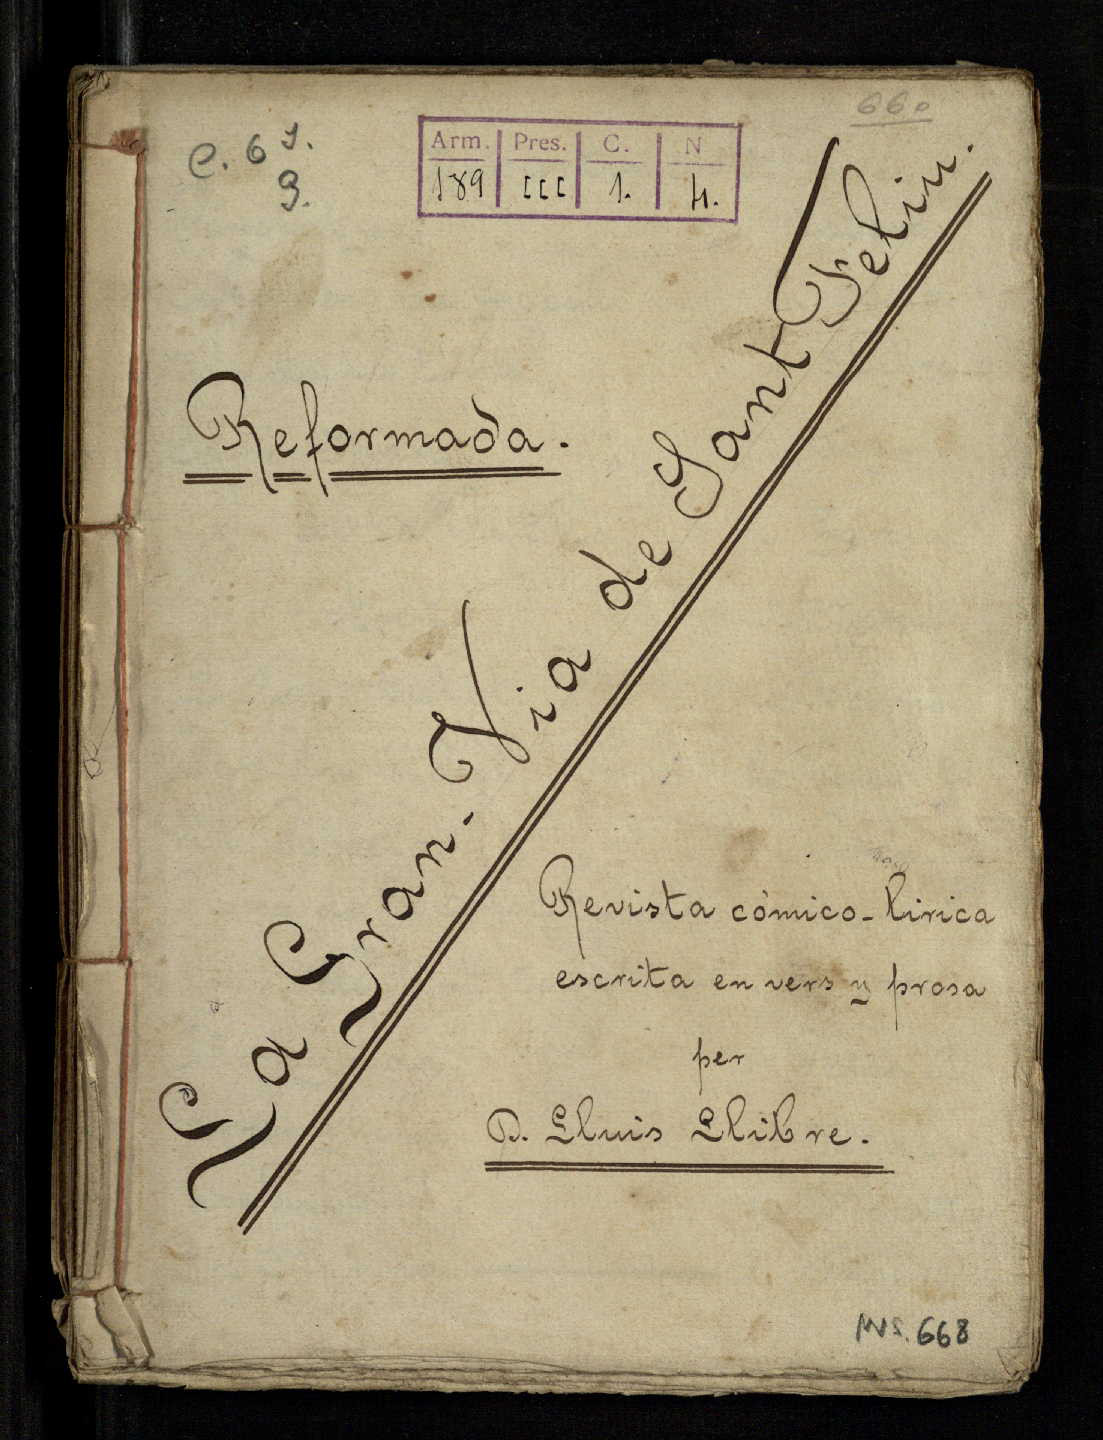 660
C. 67.
9.
Arm. Pres. C. N
189 III 1. 4.
Reformada.
La Gran-Via de Sant Feliu.
Revista cómico-lirica
escrita en vers y prosa
per
D. Lluis Llibre.
MS. 668